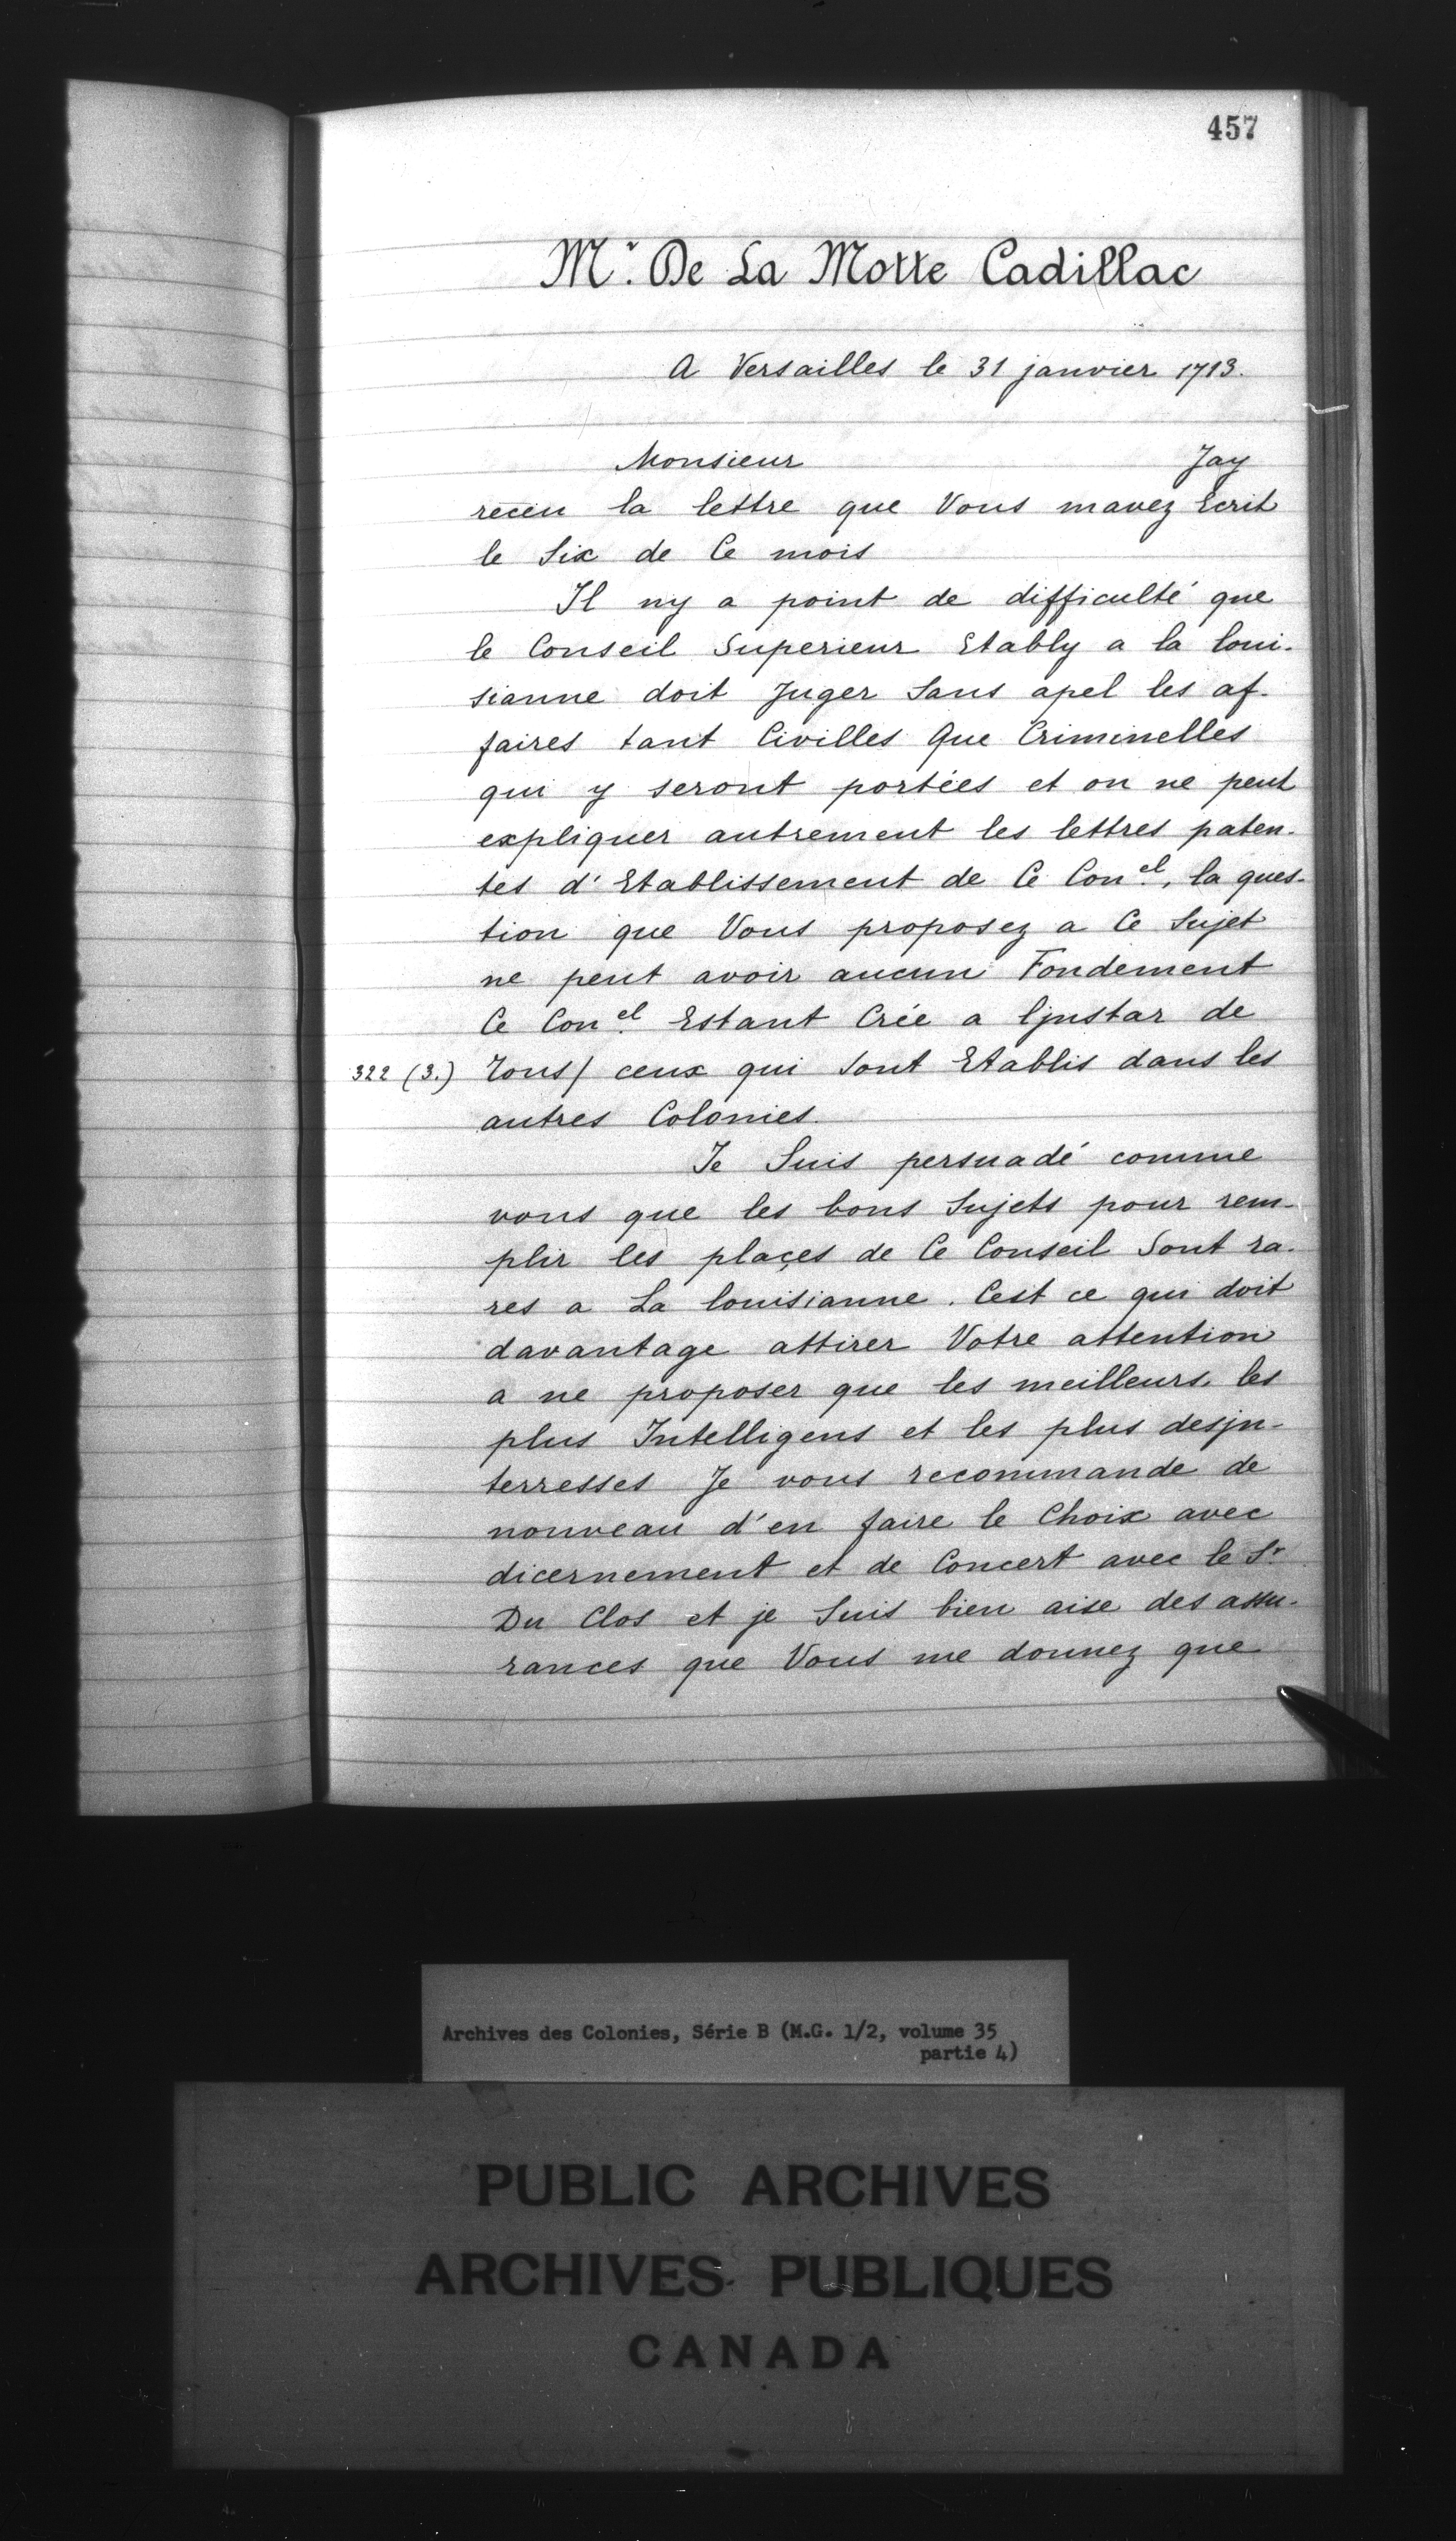 457
Mr. De La Motte Cadillac
A Versailles le 31 janvier 1713.
Monsieur Jay
receu la lettre que Vous mavez Ecrit
le Six de Ce mois
Il ny a point de difficulté que
le Conseil Superieur Etably a la loui-
sianne doit Juger Sans apel les af-
faires tant Civilles Que Criminelles
qui y seront portées et on ne peut
expliquer autrement les lettres paten-
tes d'Etablissement de Ce Con.el, la ques-
tion que Vous proposez a Ce Sujet
ne peut avoir aucun Fondement
Ce Con.el Estant Crée a ljnstar de
322 (3.) Tous/ ceux qui Sont Etablis dans les
autres Colonies.
Je Suis persuadé comme
vous que les bons Sujets pour rem-
plir les plaçes de Ce Conseil Sont ra-
res a La louisianne. Cest ce qui doit
davantage attirer Votre attention
a ne proposer que les meilleurs, les
plus Intelligens et les plus desjn-
terresses Je vous recommande de
nouveau d'en faire le Choix avec
dicernement et de Concert avec le Sr
Du Clos et je Suis bien aise des assu-
rances que Vous me donnez que
Archives des Colonies, Série B (M.G. 1/2, volume 35
partie 4)
PUBLIC ARCHIVES
ARCHIVES PUBLIQUES
CANADA